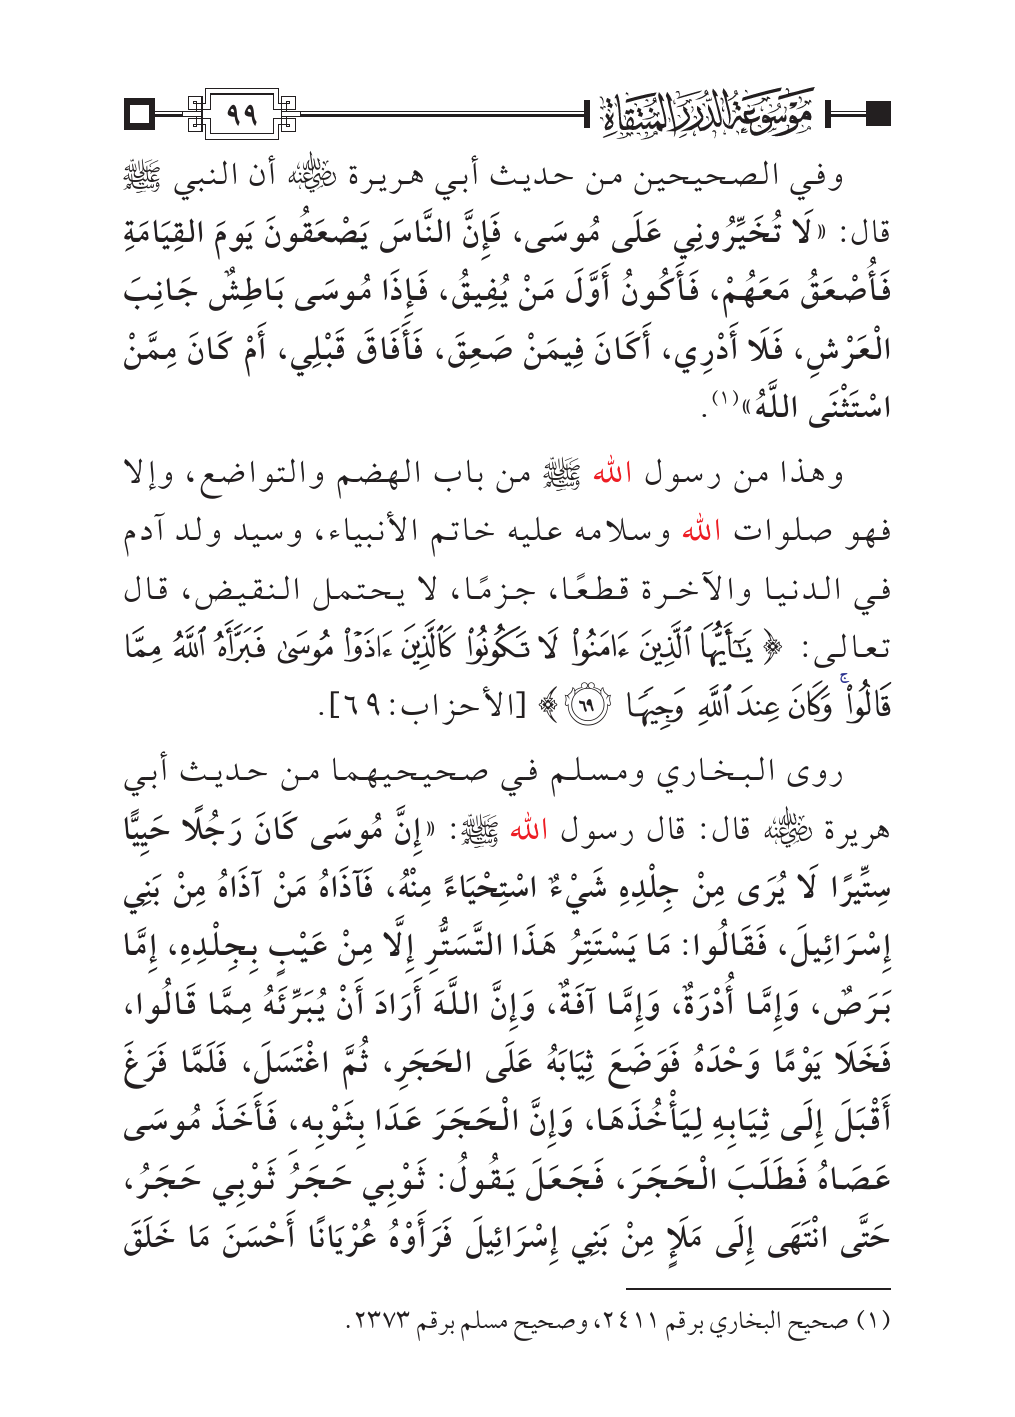 مَوْسُوعَةُ الدُّرَرِ المُنْتَقَاةِ
٩٩
وفي الصحيحين من حديث أبي هريرة رضي الله عنه أن النبي ﷺ
قال: «لَا تُخَيِّرُونِي عَلَى مُوسَى، فَإِنَّ النَّاسَ يَصْعَقُونَ يَومَ القِيَامَةِ
فَأُصْعَقُ مَعَهُمْ، فَأَكُونُ أَوَّلَ مَنْ يُفِيقُ، فَإِذَا مُوسَى بَاطِشٌ جَانِبَ
الْعَرْشِ، فَلَا أَدْرِي، أَكَانَ فِيمَنْ صَعِقَ، فَأَفَاقَ قَبْلِي، أَمْ كَانَ مِمَّنْ
اسْتَثْنَى اللَّهُ»(١).
وهذا من رسول الله ﷺ من باب الهضم والتواضع، وإلا
فهو صلوات الله وسلامه عليه خاتم الأنبياء، وسيد ولد آدم
في الدنيا والآخرة قطعًا، جزمًا، لا يحتمل النقيض، قال
تعالى: ﴿ يَـٰٓأَيُّهَا ٱلَّذِينَ ءَامَنُوا۟ لَا تَكُونُوا۟ كَٱلَّذِينَ ءَاذَوْا۟ مُوسَىٰ فَبَرَّأَهُ ٱللَّهُ مِمَّا
قَالُوا۟ ۚ وَكَانَ عِندَ ٱللَّهِ وَجِيهًا ٦٩ ﴾ [الأحزاب: ٦٩].
روى البخاري ومسلم في صحيحيهما من حديث أبي
هريرة رضي الله عنه قال: قال رسول الله ﷺ: «إِنَّ مُوسَى كَانَ رَجُلًا حَيِيًّا
سِتِّيرًا لَا يُرَى مِنْ جِلْدِهِ شَيْءٌ اسْتِحْيَاءً مِنْهُ، فَآذَاهُ مَنْ آذَاهُ مِنْ بَنِي
إِسْرَائِيلَ، فَقَالُوا: مَا يَسْتَتِرُ هَذَا التَّسَتُّرِ إِلَّا مِنْ عَيْبٍ بِجِلْدِهِ، إِمَّا
بَرَصٌ، وَإِمَّا أُدْرَةٌ، وَإِمَّا آفَةٌ، وَإِنَّ اللَّهَ أَرَادَ أَنْ يُبَرِّئَهُ مِمَّا قَالُوا،
فَخَلَا يَوْمًا وَحْدَهُ فَوَضَعَ ثِيَابَهُ عَلَى الحَجَرِ، ثُمَّ اغْتَسَلَ، فَلَمَّا فَرَغَ
أَقْبَلَ إِلَى ثِيَابِهِ لِيَأْخُذَهَا، وَإِنَّ الْحَجَرَ عَدَا بِثَوْبِهِ، فَأَخَذَ مُوسَى
عَصَاهُ فَطَلَبَ الْحَجَرَ، فَجَعَلَ يَقُولُ: ثَوْبِي حَجَرُ ثَوْبِي حَجَرُ،
حَتَّى انْتَهَى إِلَى مَلَإٍ مِنْ بَنِي إِسْرَائِيلَ فَرَأَوْهُ عُرْيَانًا أَحْسَنَ مَا خَلَقَ
(١) صحيح البخاري برقم ٢٤١١، وصحيح مسلم برقم ٢٣٧٣.